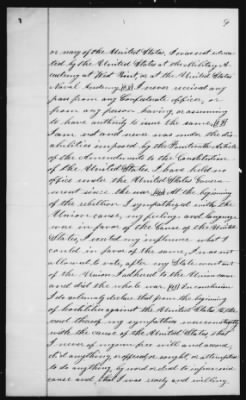 9
or navy of the United States, I was not educa-
ted by the United States at the Military A-
cademy at West Point, or at the United States
Naval Academy. I never received any
pass from any Confederate officer, or
from any person having, or assuming
to have authority to issue the same.
I am not and never was under the dis
abilities imposed by the Fourteenth Article
of the Amendments to the Constitution
of the United States. I have held no
office under the United States Govern-
ment since the war. At the beginning
of the rebellion I sympathized with the
Union cause, my feeling and language
was in favor of the Cause of the United
States, I exerted my influence what I
could in favor of the same, I was not
allowed to vote, after my State went out
of the Union I adhered to the Union cause
and did the whole war. In conclusion
I do solemnly declare that from the beginning
of hostilities against the United States to the
end thereof my sympathies were constantly
with the cause of the United States, that
I never of my own free will and accord,
did anything or offered or sought or attempted
to do anything by word or deed to injure said
cause and that I was ready and willing